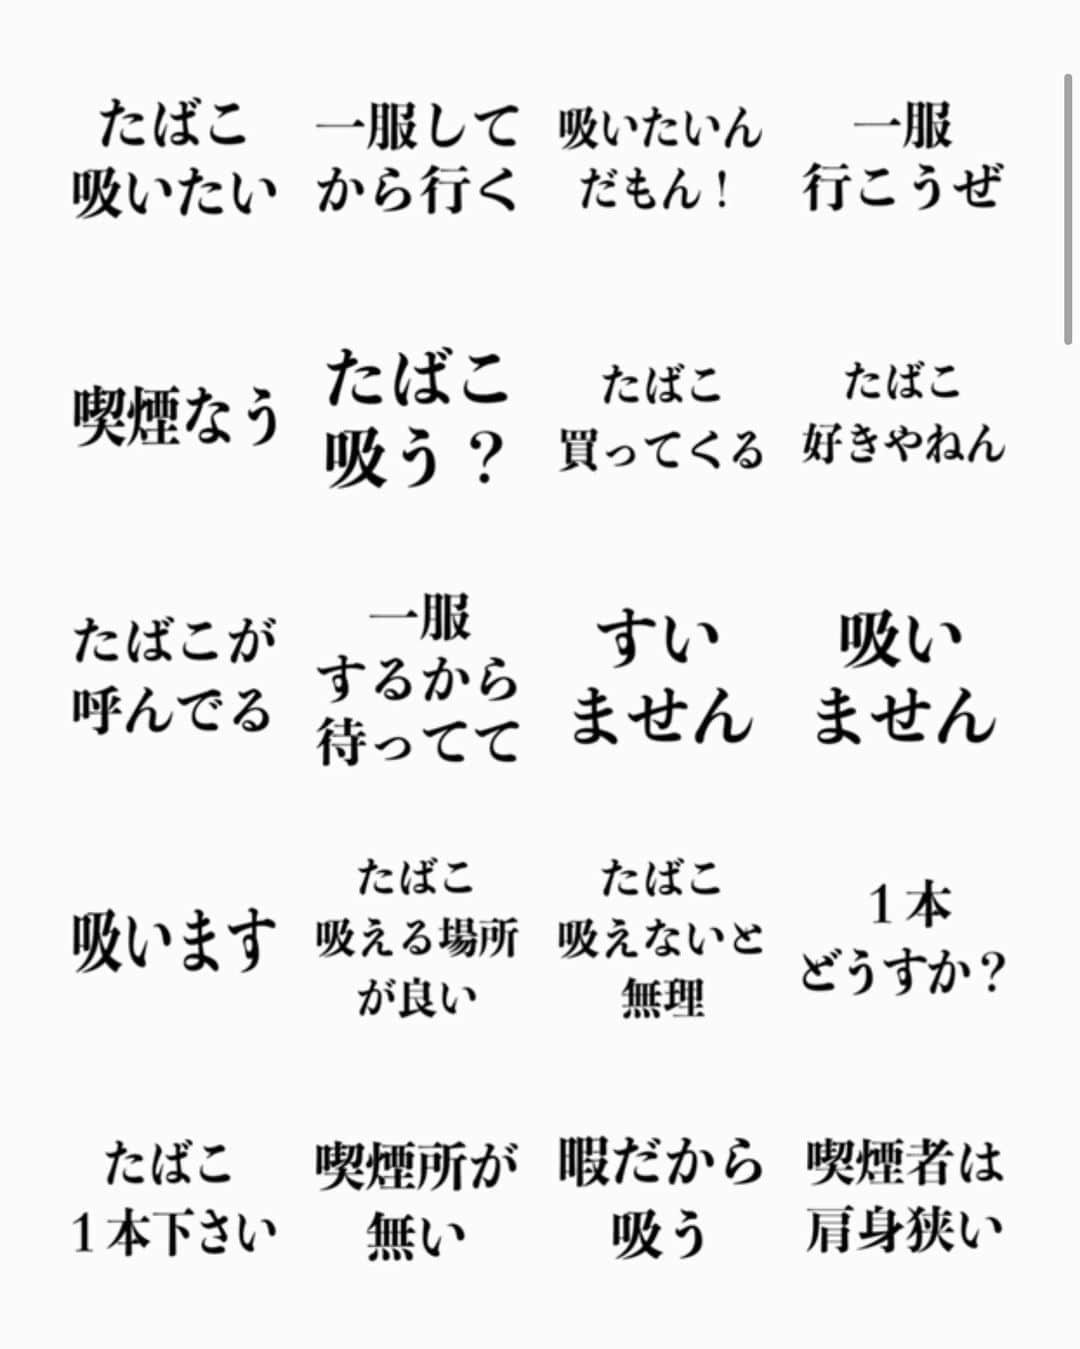 たばこ
吸いたい
一服して
から行く
吸いたいん
だもん！
一服
行こうぜ
喫煙なう
たばこ
吸う？
たばこ
買ってくる
たばこ
好きやねん
たばこが
呼んでる
一服
するから
待ってて
すい
ません
吸い
ません
吸います
たばこ
吸える場所
が良い
たばこ
吸えないと
無理
１本
どうすか？
たばこ
１本下さい
喫煙所が
無い
暇だから
吸う
喫煙者は
肩身狭い